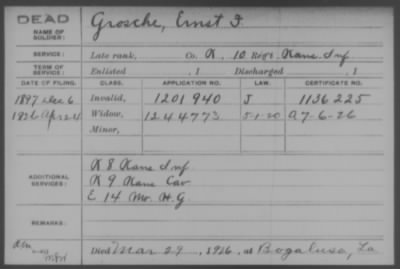 DEAD
NAME OF SOLDIER: Grosche, Ernst F.
SERVICE: Late rank, Co. K, 10 Reg't Kans Inf
TERM OF SERVICE: Enlisted , 1 Discharged , 1
DATE OF FILING. CLASS. APPLICATION NO. LAW. CERTIFICATE NO.
1897 Dec 6 Invalid, 1201940 J 1136225
1926 Apr 24 Widow, 1244773 5-1-20 A 7-6-26
Minor,
ADDITIONAL SERVICES: K 8 Kans Inf
K 9 Kans Cav
E 14 Mo. H.G.
REMARKS:
Died Mar 29, 1926, at Bogalusa, La